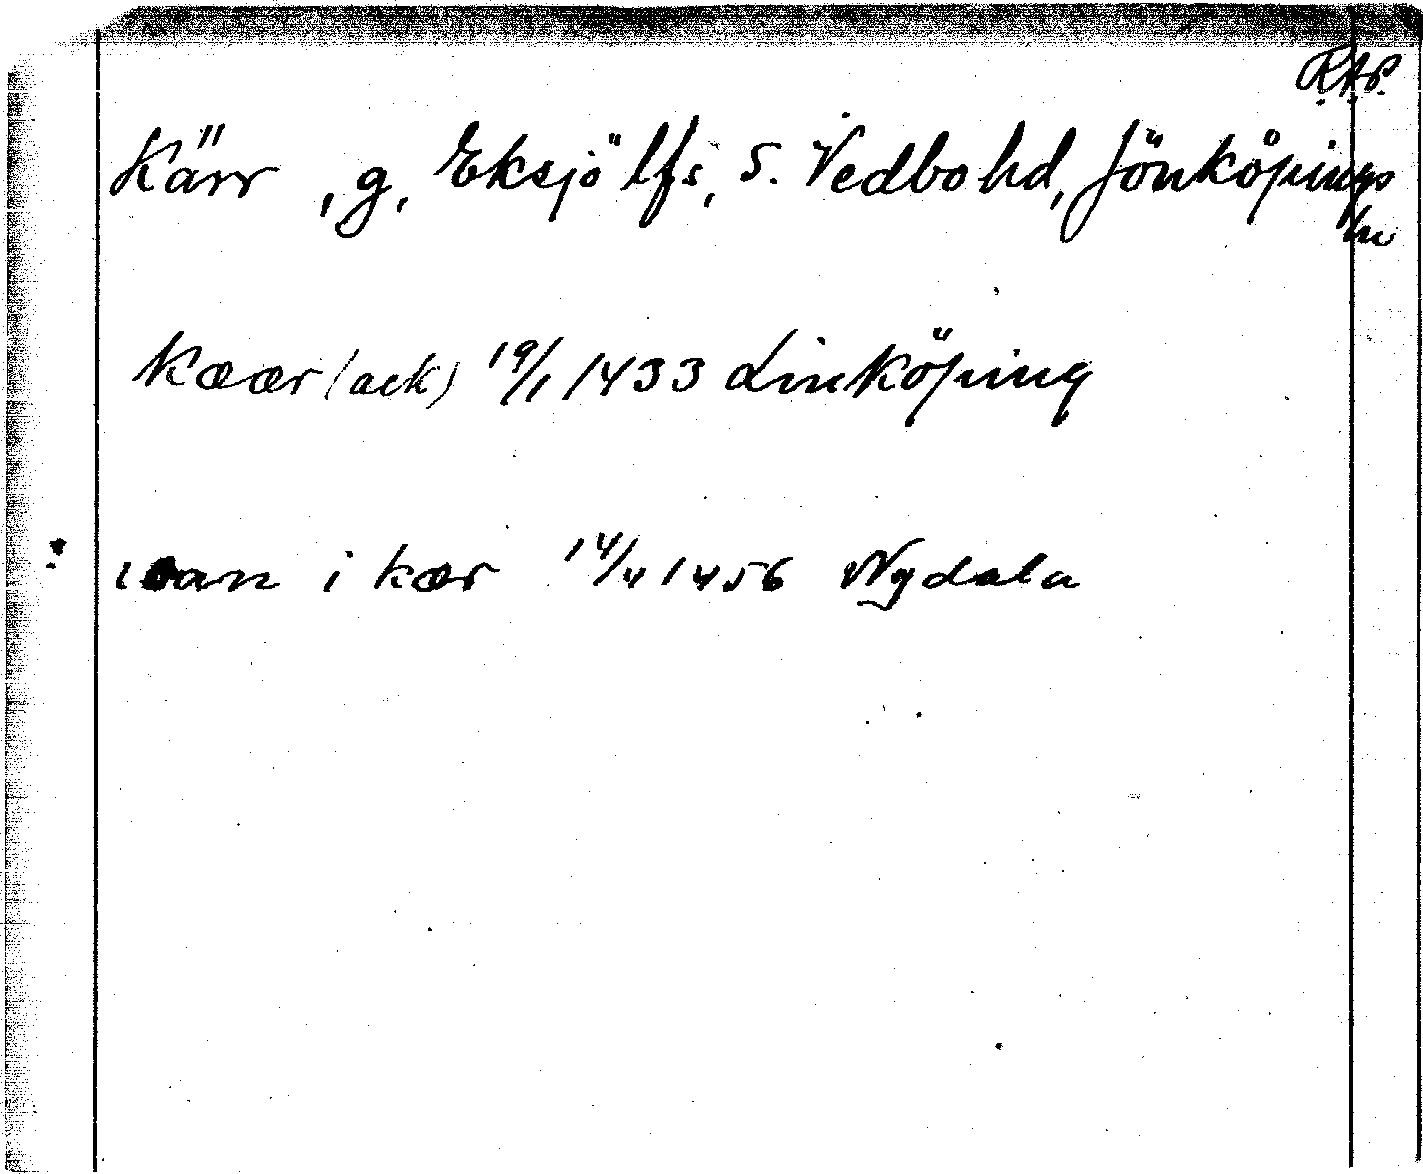 R.A.P.
Kärr, g, Eksjö lfs, S. Vedbo hd, Jönköpings
län
Kæær (ack) 19/1 1433 Linköping
i kær 14/4 1456 Nydala